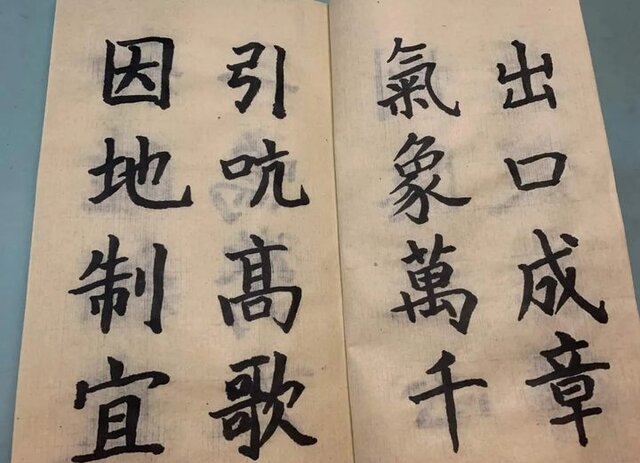 出口成章
氣象萬千
引吭高歌
因地制宜